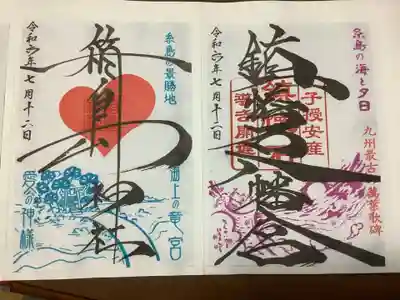 糸島の海と夕日
九州最古 萬葉歌碑
子授安産
鎮懐石八幡宮
令和六年七月十二日
糸島の景勝地
海上の竜宮
箱島神社
令和六年七月十二日
愛の神様